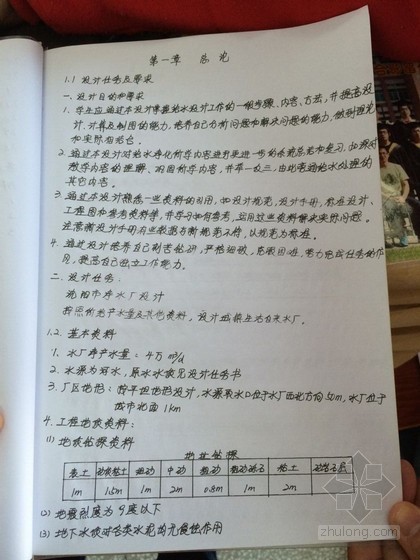 第一章 总论
1.1 设计任务及要求
一、设计目的和要求
1. 学生应通过本设计掌握给水设计工作的一般步骤、内容、方法，并提高设
计、计算及制图的能力，培养自己分析问题和解决问题的能力，做到理论
和实际相结合。
2. 通过本设计对给水净化所学内容进行更进一步的系统总结和复习，加深对
所学内容的理解、巩固所学内容，并举一反三，由此贯通给水处理的
其它内容。
3. 通过本设计熟悉一些资料的利用，如设计规范，设计手册，标准设计、
工程图和参考资料等，并学习如何思考，运用这些资料解决实际问题。
注意新设计手册的些数据与新规范不符，以规范为标准。
4. 通过设计培养自己刻苦钻研，严格细致，克服困难，努力完成任务的作
风，提高自己独立工作能力。
二、设计任务：
沈阳市净水厂设计
根据所给产水量及其他资料，设计城镇生活自来水厂。
1.2. 基本资料
1. 水厂净产水量：4万 m³/d
2. 水源为河水，原水水质见设计任务书
3. 厂区地形：按平坦地形设计，水源取水口位于水厂西北方向50m，水厂位于
城市北面 1km
4. 工程地质资料：
(1) 地质钻探资料
地址钻探
表土 砂质粘土 细砂 中砂 粗砂 粗砂砾石 粘土 砂岩石层
1m 1.5m 1m 2m 0.8m 1m 2m
(2) 地震烈度为9度以下
(3) 地下水质对各类水泥均无侵蚀作用
zhulong.com